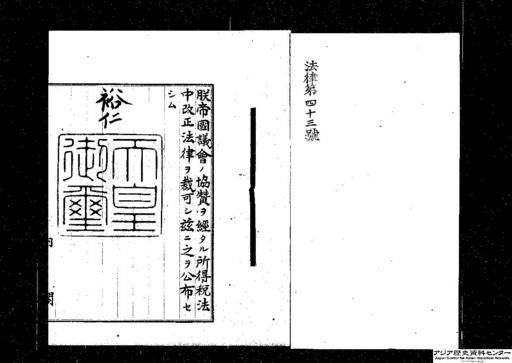 法律第四十三號
朕帝國議會ノ協贊ヲ經タル所得稅法
中改正法律ヲ裁可シ玆ニ之ヲ公布セ
シム
裕仁
天皇
御璽
内閣
アジア歴史資料センター
Japan Center for Asian Historical Records